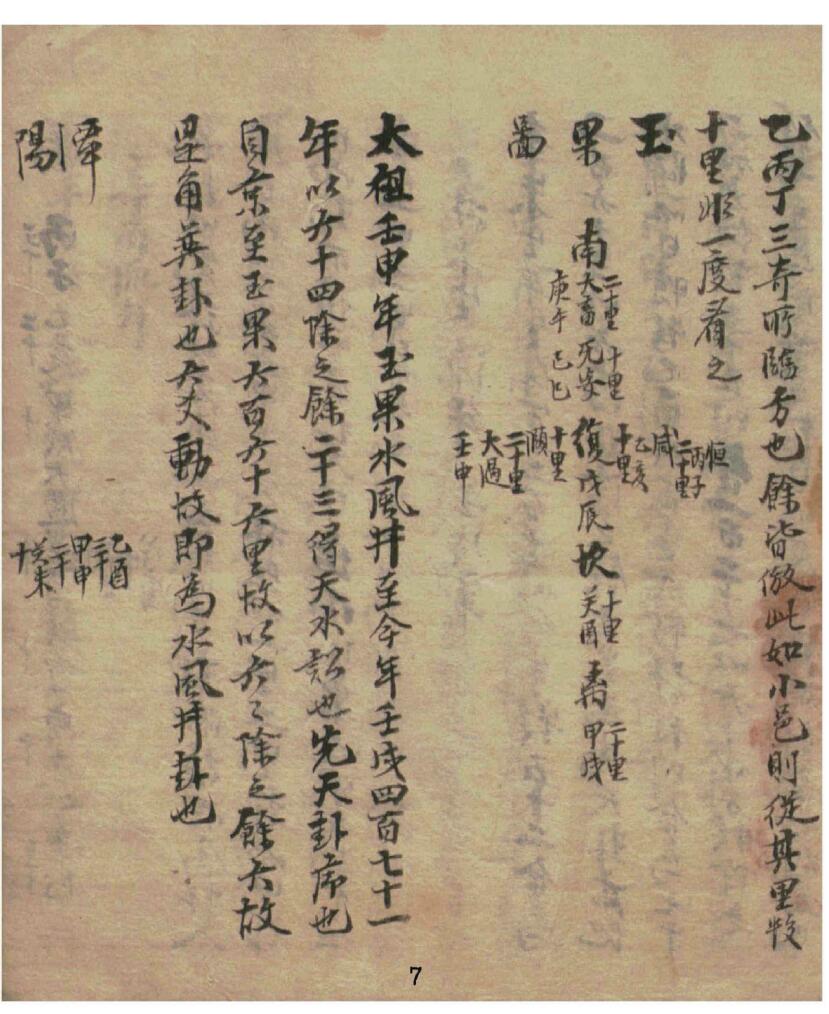 乙丙丁三奇所臨方也餘皆倣此如小邑則從其里數
十里作一度看之
玉
果 南 二十里 大畜 死安 十里 庚午 己巳 復 戊辰 坎 十里 癸酉 離 二十里 甲戌
恒 丙子 二十里 咸 乙亥 十里
頤 十里 大過 二十里 壬申
圖
太祖壬申年玉果水風井至今年壬戌四百七十一
年以六十四除之餘二十三得天水訟也先天卦序也
自京至玉果六百六十六里故以六六除之餘六故
是角巽卦也六爻動故即為水風井卦也
潭
陽
乙酉 三十 甲申 二十 癸未 十